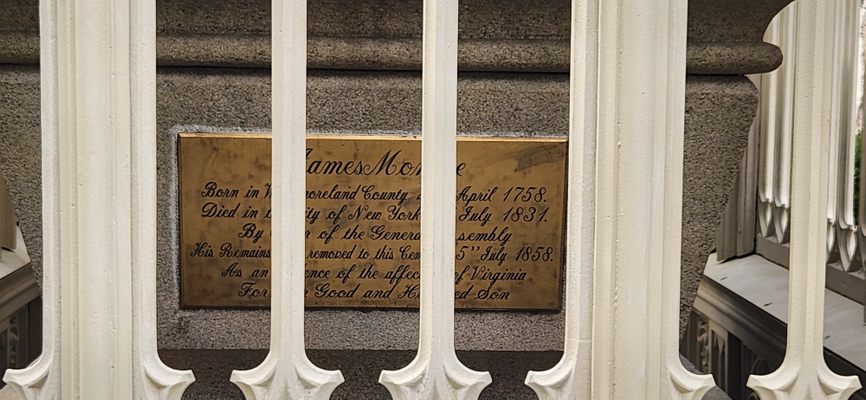 James Monroe
Born in Westmoreland County April 1758.
Died in the City of New York July 1831.
By Order of the General Assembly
His Remains removed to this Cemetery 5th July 1858.
As an Evidence of the affection of Virginia
For Good and Honored Son